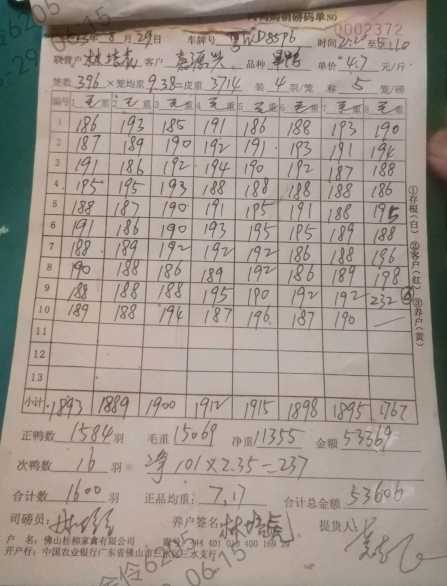 磅码单 NO 0002372
8月29日 车牌号 D8576 时间 至5:10
联营户 林培 客户 品种 单价 4.7 元/斤
笼数 396 × 笼均重 9.38 = 皮重 3714 装 4 羽/笼 称 5 笼/磅
编号 1 毛重 2 毛重 3 毛重 4 毛重 5 毛重 6 毛重 7 毛重 8 毛重
1 186 193 185 191 186 188 193 190
2 187 189 190 192 191 193 191 194
3 191 186 192 194 190 192 187 188
4 195 195 193 188 188 188 188 186
5 188 187 190 191 195 191 188 195
6 191 186 190 193 195 195 189 188
7 188 189 192 192 192 186 188 196
8 190 188 186 189 192 186 189 198
9 188 188 188 195 190 192 192 232
10 189 188 194 187 196 187 190 —
11
12
13
小计 1893 1889 1900 1912 1915 1898 1895 1767
正鸭数 1584 羽 毛重 15069 净重 11355 金额 53369
次鸭数 16 羽 净 101 × 2.35 = 237
合计数 1600 羽 正品均重: 7.17 合计总金额 53606
司磅员: 养户签名: 林培 提货人:
户 名: 佛山 家禽有限公司
开户行: 中国农业银行广东省佛山市三水区 支行
①存根(白) ②客户(红) ③养户(黄)